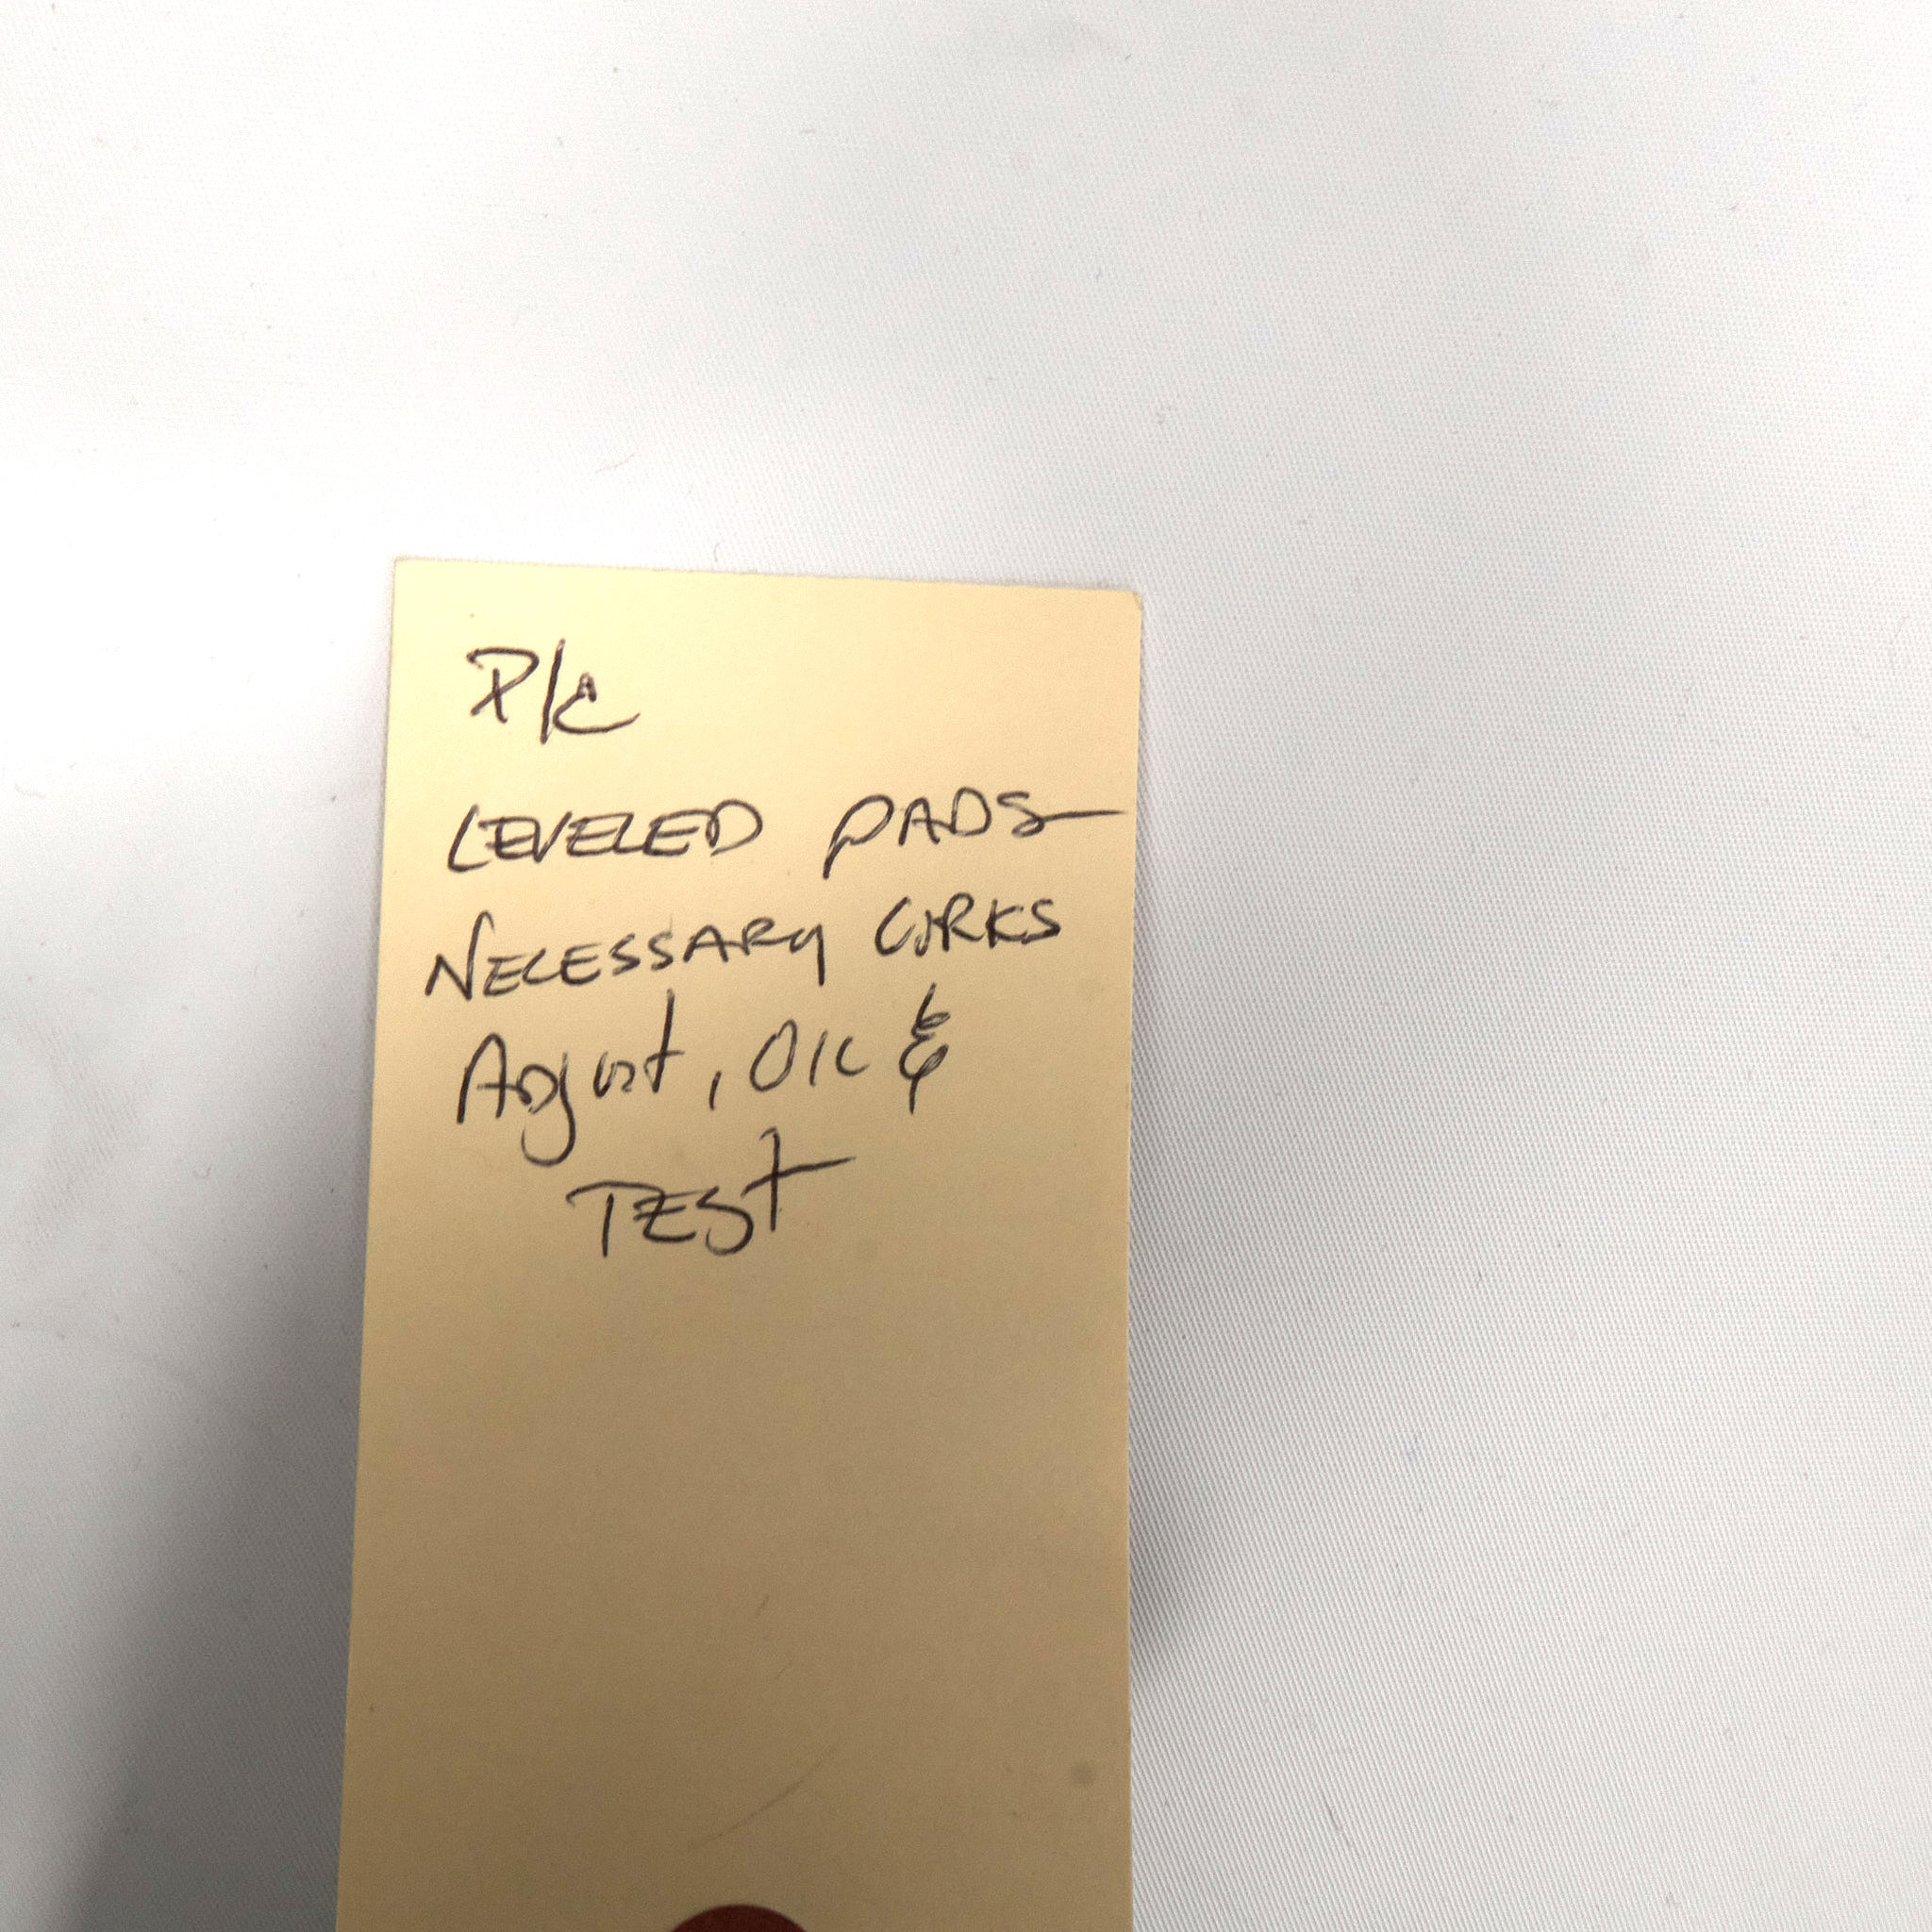 P/C
LEVELED PADS
NECESSARY CORKS
ADJUST, OIL &
TEST